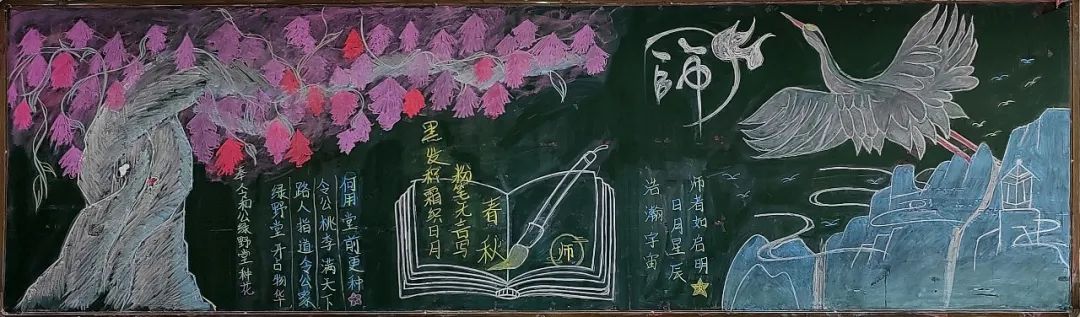 和公绿野堂种花
绿野堂开占物华
路人指道令公家
令公桃李满天下
何用堂前更种
黑发积霜织日月
粉笔无言写
春秋
师
師
浩瀚宇宙
日月星辰
师者如启明